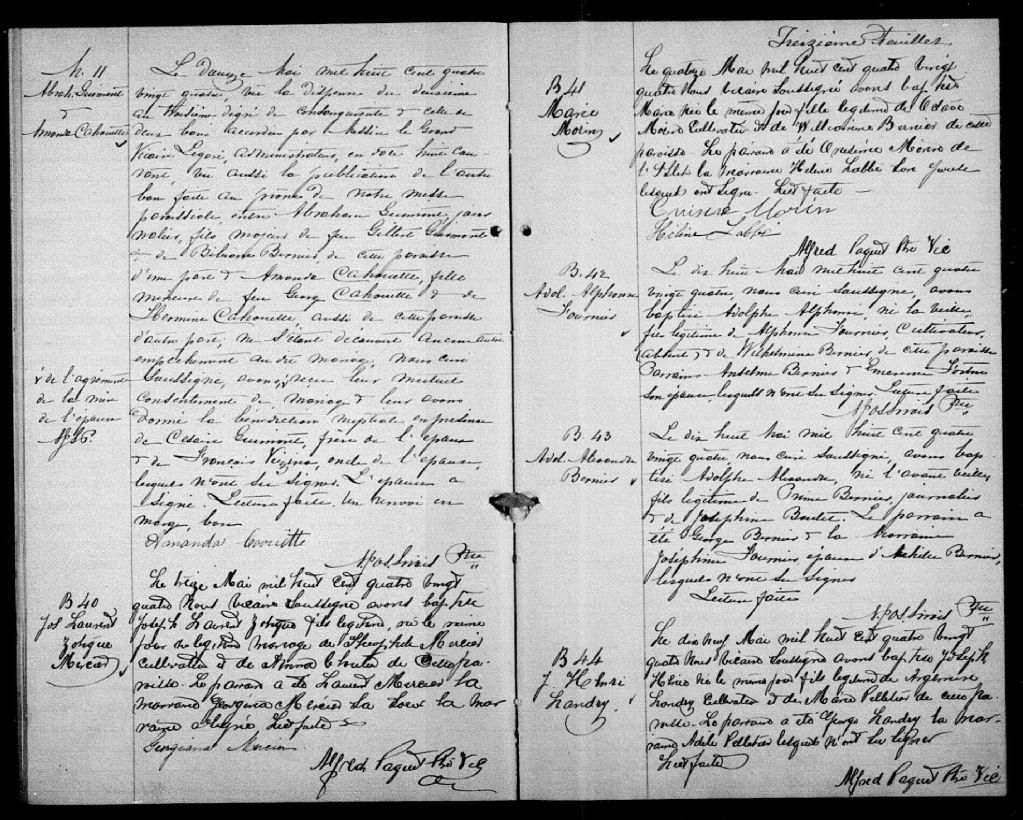 M. 11
Abrah. Guimont
&
Amanda Cahouette
Le douze Mai mil huit cent quatre
vingt quatre, vu la dispense du deuxième
au troisième degré de consanguinité & celle de
deux bans accordées par Messire le Grand
Vicaire Legaré, administrateur, en date huit cou-
rant, vu aussi la publication de l'autre
ban faite au prône de notre messe
paroissiale, entre Abraham Guimont, jour
nalier, fils majeur de feu Gilbert Guimont
& de Bernier, de cette paroisse
d'une part & Amanda Cahouette, fille
mineure de feu George Cahouette & de
Hermine Cahouette aussi de cette paroisse
d'autre part; ne s'étant découvert aucun autre
empêchement au dit mariage, nous curé
soussigné, avons reçu leur mutuel
consentement de mariage & leur avons
donné la bénédiction nuptiale en présence
de Cesaire Guimont, frère de l'époux
& de François Vezina, oncle de l'épouse,
lesquels n'ont su signer. L'épouse a
signé. Lecture faite. Un renvoi en
marge, bon
x de l'agrément
de la mère
de l'épouse
Amanda
Ptre
B 40
Jos Laurent
Zotique
Mercier
Le treize Mai mil huit cent quatre vingt
quatre Nous vicaire soussigné avons baptisé
Joseph Laurent Zotique fils légitime, né le même
jour du légitime mariage de Theophile Mercier
cultivateur et de Anna de cette pa-
roisse. Le parrain a été Laurent Mercier la
marraine Georgina Mercier sa soeur la mar
raine a signé Lect faite
Georgiana Mercier
Alfred Paquet Ptre Vic
Treizième Feuillet
B 41
Marie
Morin
Le quatorze Mai mil huit cent quatre vingt
quatre Nous vicaire soussigné avons baptisé
Marie née le même jour fille légitime de Octave
Morin cultivateur et de Bernier de cette
paroisse. Le parrain a été Onésime Morin de
l'Islet la marraine Helène Labbé son épouse
lesquels ont signé. Lect faite
Onisime Morin
Hélène Labbé
Alfred Paquet Ptre Vic
B. 42
Adol. Alphonse
Fournier
Le dix huit Mai mil huit cent quatre
vingt quatre, nous curé soussigné, avons
baptisé Adolphe Alphonse, né la veille,
fils légitime de Alphonse Fournier, cultivateur,
(absent) & de Wilhelmine Bernier, de cette paroisse
Parrains Anselme Bernier & Emerence Fortin
son épouse, lesquels n'ont su signer. Lecture faite
Ptre
B. 43
Adol-Alexandre
Bernier
Le dix huit Mai mil huit cent quatre
vingt quatre nous curé soussigné, avons bap
tisé Adolphe Alexandre, né l'avant veille,
fils légitime de Prime Bernier, journalier
& de Josephine Boulet. Le parrain a
été George Bernier & la marraine
Joséphine Fournier épouse d'Achille Bernier,
lesquels n'ont su signer
Lecture faite
Ptre
B 44
J. Henri
Landry
Le dix neuf Mai mil huit cent quatre vingt
quatre Nous vicaire soussigné avons baptisé Joseph
Henri né le même jour fils légitime de
Landry cultivateur et de Marie Pelletier de cette pa-
roisse. Le parrain a été George Landry la mar
raine Adele Pelletier lesquels n'ont su signer
Lect faite
Alfred Paquet Ptre Vic